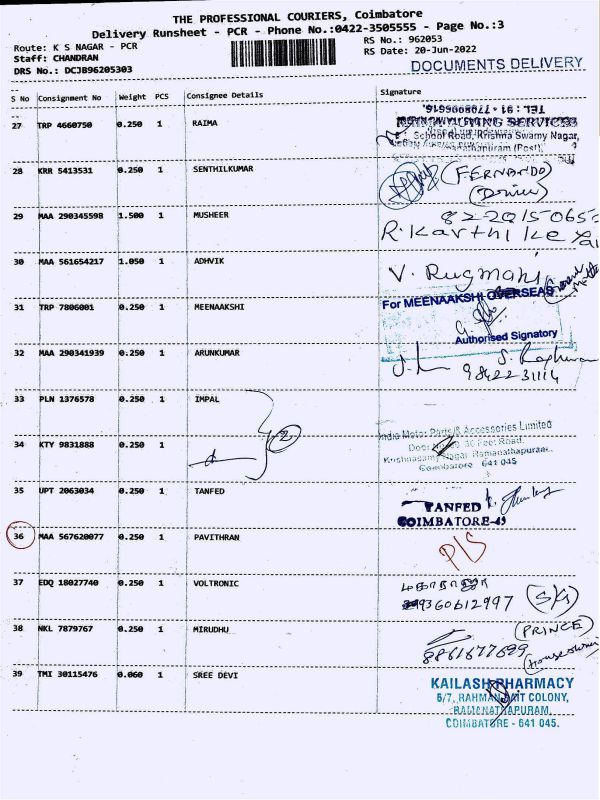 THE PROFESSIONAL COURIERS, Coimbatore
Delivery Runsheet - PCR - Phone No.:0422-3505555 - Page No.:3
Route: K S NAGAR - PCR
RS No.: 962053
Staff: CHANDRAN
RS Date: 20-Jun-2022
DRS No.: DCJB96205303
DOCUMENTS DELIVERY
S No Consignment No Weight PCS Consignee Details Signature
27 TRP 4660750 0.250 1 RAIMA
TEL : 91 - 7708096916.
School Road, Krishna Swamy Nagar,
28 KRR 5413531 0.250 1 SENTHILKUMAR
(FERNANDO)
(Driver)
29 MAA 290345598 1.500 1 MUSHEER
R. Karthi
30 MAA 561654217 1.050 1 ADHVIK
V. Rugmani
31 TRP 7806001 0.250 1 MEENAAKSHI
For MEENAAKSHI OVERSEAS
Authorised Signatory
32 MAA 290341939 0.250 1 ARUNKUMAR
S. Raghuram
98422 31114
33 PLN 1376578 0.250 1 IMPAL
2
India Motor Parts & Accessories Limited
34 KTY 9831888 0.250 1
30 Feet Road,
Krishnasamy Nagar, Ramanathapuram,
Coimbatore 641 045
35 UPT 2063034 0.250 1 TANFED
TANFED
COIMBATORE-45
36 MAA 567620077 1 PAVITHRAN
P/S
37 EDQ 18027740 0.250 1 VOLTRONIC
9360612997
38 NKL 7879767 0.250 1 MIRUDHU
(PRINCE)
8861677699
39 TMI 30115476 0.060 1 SREE DEVI
KAILASH PHARMACY
6/7, RAHMAN SAIT COLONY,
RAMANATHAPURAM,
COIMBATORE - 641 045.